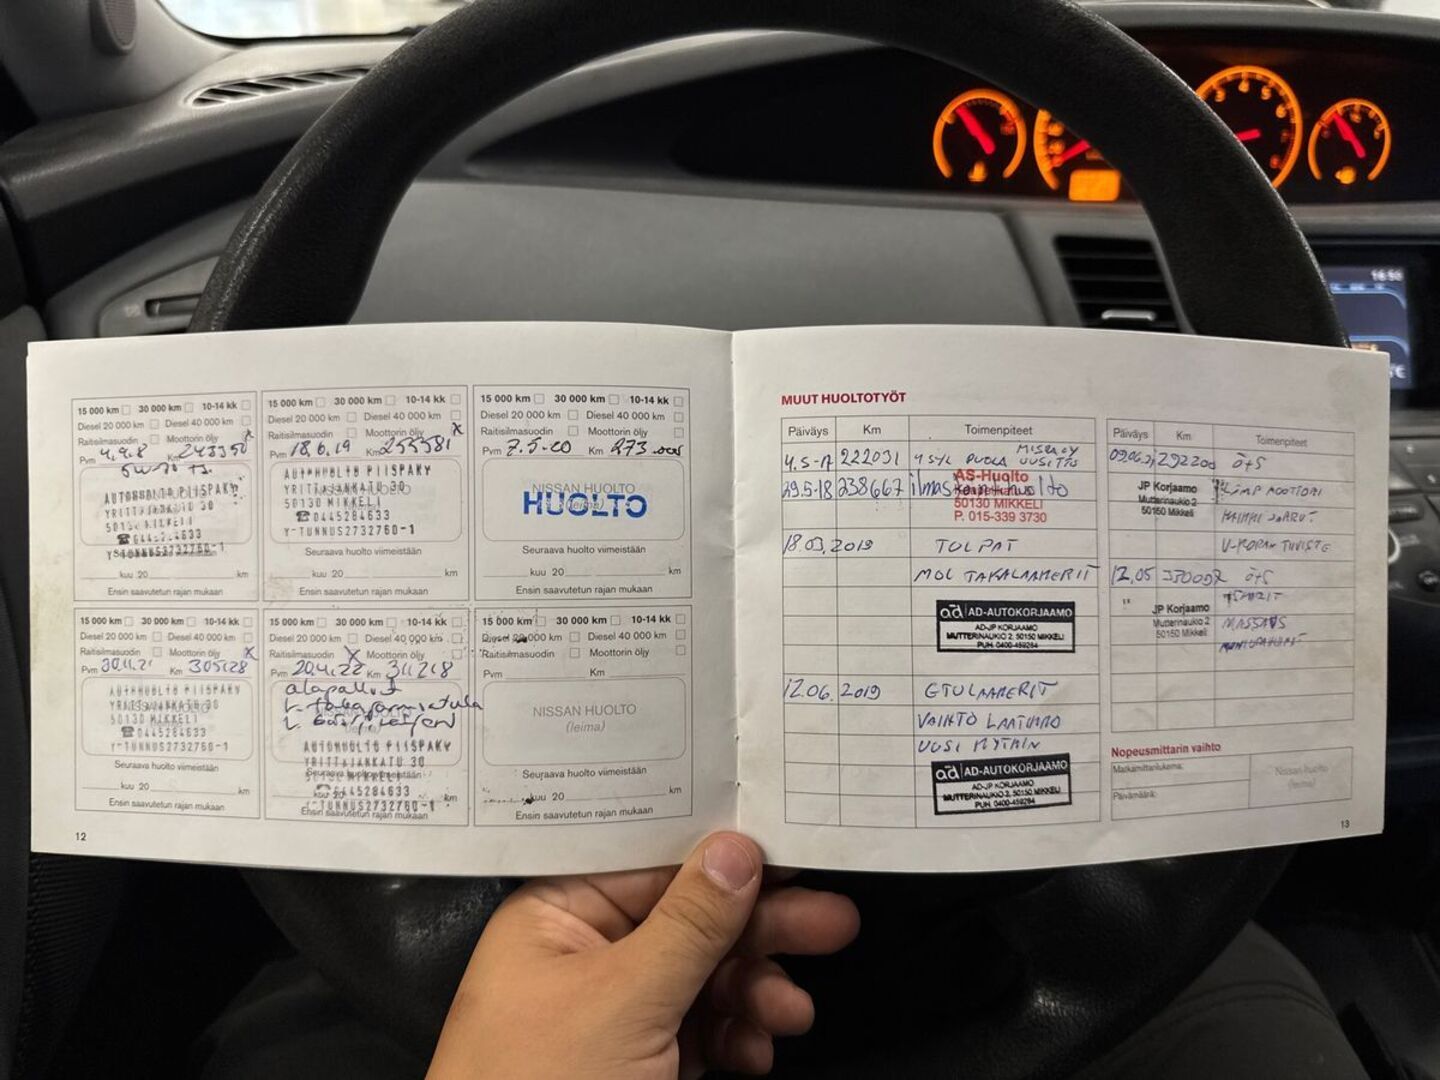 15 000 km 30 000 km 10-14 kk
Diesel 20 000 km Diesel 40 000 km
Raitisilmasuodin Moottorin öljy x
Pvm 4.9.8 Km 243350
AUTOHUOLTO PIISPAKY
YRITTAJANKATU 30
50130 MIKKELI
Y-TUNNUS2732760-1
kuu 20 km
Ensin saavutetun rajan mukaan
15 000 km 30 000 km 10-14 kk
Diesel 20 000 km Diesel 40 000 km
Raitisilmasuodin Moottorin öljy x
Pvm 18.6.19 Km 255581
AUTOHUOLTO PIISPAKY
YRITTAJANKATU 30
50130 MIKKELI
☎0445284633
Y-TUNNUS2732760-1
Seuraava huolto viimeistään
kuu 20 km
Ensin saavutetun rajan mukaan
15 000 km 30 000 km 10-14 kk
Diesel 20 000 km Diesel 40 000 km
Raitisilmasuodin Moottorin öljy
Pvm 7.5.20 Km 273.000
NISSAN HUOLTO
(leima)
HUOLTO
Seuraava huolto viimeistään
kuu 20 km
Ensin saavutetun rajan mukaan
15 000 km 30 000 km 10-14 kk
Diesel 20 000 km Diesel 40 000 km
Raitisilmasuodin Moottorin öljy x
Pvm 30.11.21 Km 305128
AUTOHUOLTO PIISPAKY
YRITTAJANKATU 30
50130 MIKKELI
☎0445284633
Y-TUNNUS2732760-1
Seuraava huolto viimeistään
kuu 20 km
Ensin saavutetun rajan mukaan
15 000 km 30 000 km 10-14 kk
Diesel 20 000 km Diesel 40 000 km
Raitisilmasuodin x Moottorin öljy
Pvm 20.4.22 Km 311218
alapallot
AUTOHUOLTO PIISPAKY
YRITTAJANKATU 30
☎0445284633
Y-TUNNUS2732760-1
Ensin saavutetun rajan mukaan
15 000 km 30 000 km 10-14 kk
Diesel 20 000 km Diesel 40 000 km
Raitisilmasuodin Moottorin öljy
Pvm Km
NISSAN HUOLTO
(leima)
Seuraava huolto viimeistään
kuu 20 km
Ensin saavutetun rajan mukaan
12
MUUT HUOLTOTYÖT
Päiväys Km Toimenpiteet
4.5-17 222031 4 SYL PUOLA UUSITTU
29.5-18 238667 ilmastointihuolto
AS-Huolto
50130 MIKKELI
P. 015-339 3730
18.03.2019 TOLPAT
MOL TAKALAAKERIT
ad AD-AUTOKORJAAMO
AD-JP KORJAAMO
MUTTERINAUKIO 2, 50150 MIKKELI
PUH. 0400-459284
12.06.2019 ETULAAKERIT
VAIHTO LAATIKKO
UUSI KYTKIN
ad AD-AUTOKORJAAMO
AD-JP KORJAAMO
MUTTERINAUKIO 2, 50150 MIKKELI
PUH. 0400-459284
Päiväys Km Toimenpiteet
09.06.21 292200 Ö+S
JP Korjaamo
Mutterinaukio 2
50150 Mikkeli
V-KOPAN TIIVISTE
12.05 330097 Ö+S
JP Korjaamo
Mutterinaukio 2
50150 Mikkeli
Nopeusmittarin vaihto
Matkamittarilukema:
Nissan huolto
(leima)
Päivämäärä:
13